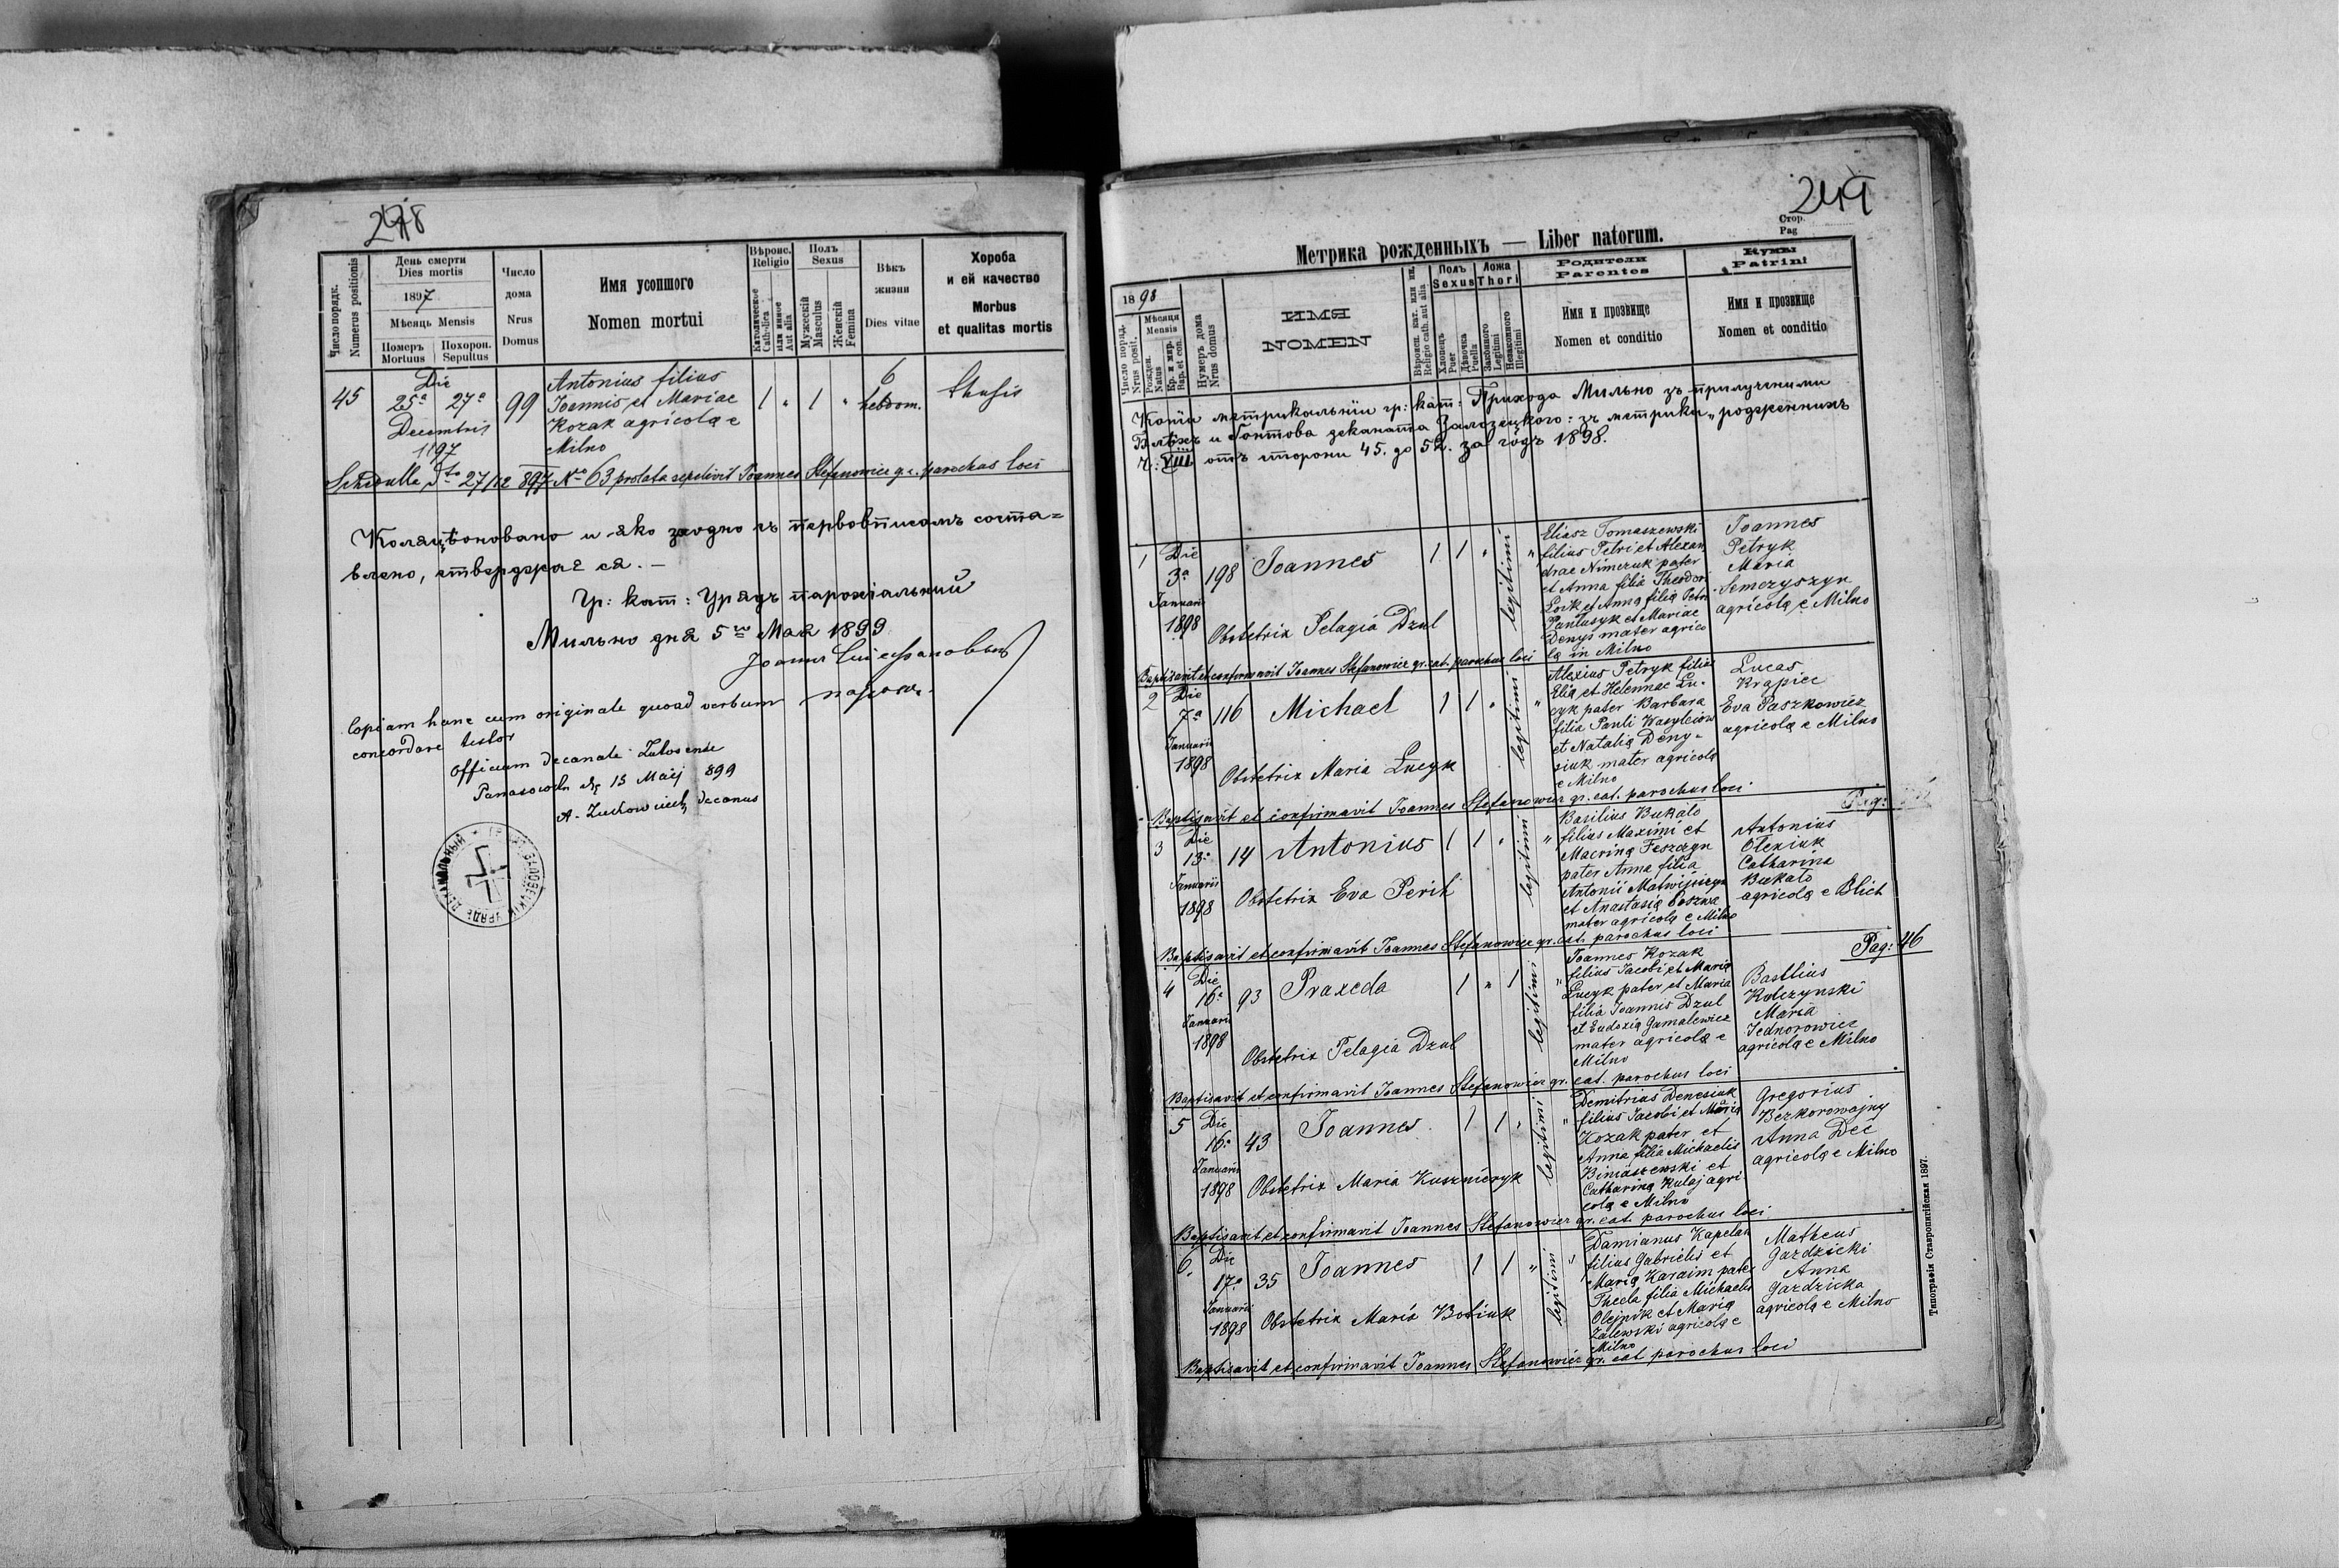 248
Число порядк.
Numerus positionis
День смерти
Dies mortis
1897
Мѣсяць Mensis
Померъ
Mortuus
Похорон.
Sepultus
Число
дома
Nrus
Domus
Имя усопшого
Nomen mortui
Вѣроис.
Religio
Католическое
Catholica
или иное
Aut alia
Полъ
Sexus
Мужескій
Masculus
Женскій
Femina
Вѣкъ
жизни
Dies vitae
Хороба
и ей качество
Morbus
et qualitas mortis
45
Die
25a 27a
Decembris
1897
99
Antonius filius
Joannis et Mariae
Kozak agricolą e
Milno
1 " 1 "
6
hebdom.
thusis
Schedulla dto 27/12 897 No 63 prolata sepelivit Joannes Stefanowicz g.c. parochus loci
Коляціоновано и яко заодно съ первовписомъ соста=
влено, стверджає ся. –
Гр: кат: Урядъ парохіальный
Мильно дня 5го Мая 1899
Copiam hanc cum originale quoad verbum
concordare testor
Officium decanale Zalosense
13 Maij 899
decanus
249
Стор.
Pag
Метрика рожденныхъ — Liber natorum.
1898
Число поряд.
Nrus posit.
Мѣсяця
Mensis
Рожден.
Natus
Кр. и мир.
Bap. et con.
Нумеръ дома
Nrus domus
ИМЯ
NOMEN
Вѣроисп. кат. или ин.
Religio cath. aut alia
Полъ
Sexus
Хлопецъ
Puer
Дѣвочка
Puella
Ложа
Thori
Законного
Legitimi
Незаконного
Illegitimi
Родители
Parentes
Имя и прозвище
Nomen et conditio
Кумы
Patrini
Имя и прозвище
Nomen et conditio
Копія метрикальніи гр: кат: Прихода Мильно зъ прилучніми
Блѣхъ и Гонтова деканата Залозецкого: зъ метрики „родженнихъ
Ч: VIII отъ сторони 45. до 52. за годъ 1898.
1
Die
3a
Januarii
1898
198
Joannes
1 1 " legitimi "
Obstetrix Pelagia Dzul
Eliasz Tomaszewski
filius Petri et Alexan
drae Nimczuk pater
et Anna filia Theodori
et Anną filią Petri
Pantasyk et Mariae
Denys mater agrico
lą in Milno
Joannes
Petryk
Maria
Semczyszyn
agricolą e Milno
Baptisavit et confirmavit Joannes Stefanowicz gr. cat. parochus loci
2
Die
7a
Januarii
1898
116
Michael
1 1 " legitimi "
Obstetrix Maria Łucyk
Alexius Petryk filius
Elią et Helennae Łu-
cyk pater Barbara
filia Pauli Wasylciów
et Natalią Deny-
siuk mater agricolą
e Milno
Lucas
Krąpiec
Eva Paszkowicz
agricolą e Milno
Baptisavit et confirmavit Joannes Stefanowicz gr. cat. parochus loci
Pag:
3
Die
13a
Januarii
1898
14
Antonius
1 1 " legitimi "
Obstetrix Eva Perih
Basilius Bukało
filius Maximi et
Macriną Feszczyn
pater Anna filia
Antonii Matwijiszyn
et Anastasią
mater agricolą e Milno
Antonius
Olexiuk
Catharina
Bukało
agricolą e Blich
Baptisavit et confirmavit Joannes Stefanowicz gr. cat. parochus loci
Pag: 46
4
Die
16a
Januarii
1898
93
Praxeda
1 " 1 legitimi "
Obstetrix Pelagia Dzul
Joannes Kozak
filius Jacobi et Marią
Łucyk pater et Maria
filia Joannis Dzul
et Eudoxią Gamalewicz
mater agricolą e
Milno
Basilius
Kołczynski
Maria
Jednorowicz
agricolą e Milno
Baptisavit et confirmavit Joannes Stefanowicz gr. cat. parochus loci
5
Die
16a
Januarii
1898
43
Joannes
1 1 " legitimi "
Obstetrix Maria Kusznieryk
Demitrius Denesiuk
filius Jacobi et Marią
Kozak pater et
Anna filia Michaelis
Biniaszewski et
Catharina Kulaj agri
colą e Milno
Gregorius
Bezkorowajny
Anna Dec
agricolą e Milno
Baptisavit et confirmavit Joannes Stefanowicz gr. cat. parochus loci
6.
Die
17a
Januarii
1898
35
Joannes
1 1 " legitimi "
Obstetrix Maria Botiuk
Damianus Kapelan
filius Gabrielis et
Marią Karaim pater
Thecla filia Michaelis
Olejnik et Marią
Zalewski agricolą e
Milno
Matheus
Gazdzicki
Anna
Gazdzicka
agricolą e Milno
Baptisavit et confirmavit Joannes Stefanowicz gr. cat parochus loci
Типографія Ставропигійская 1897.